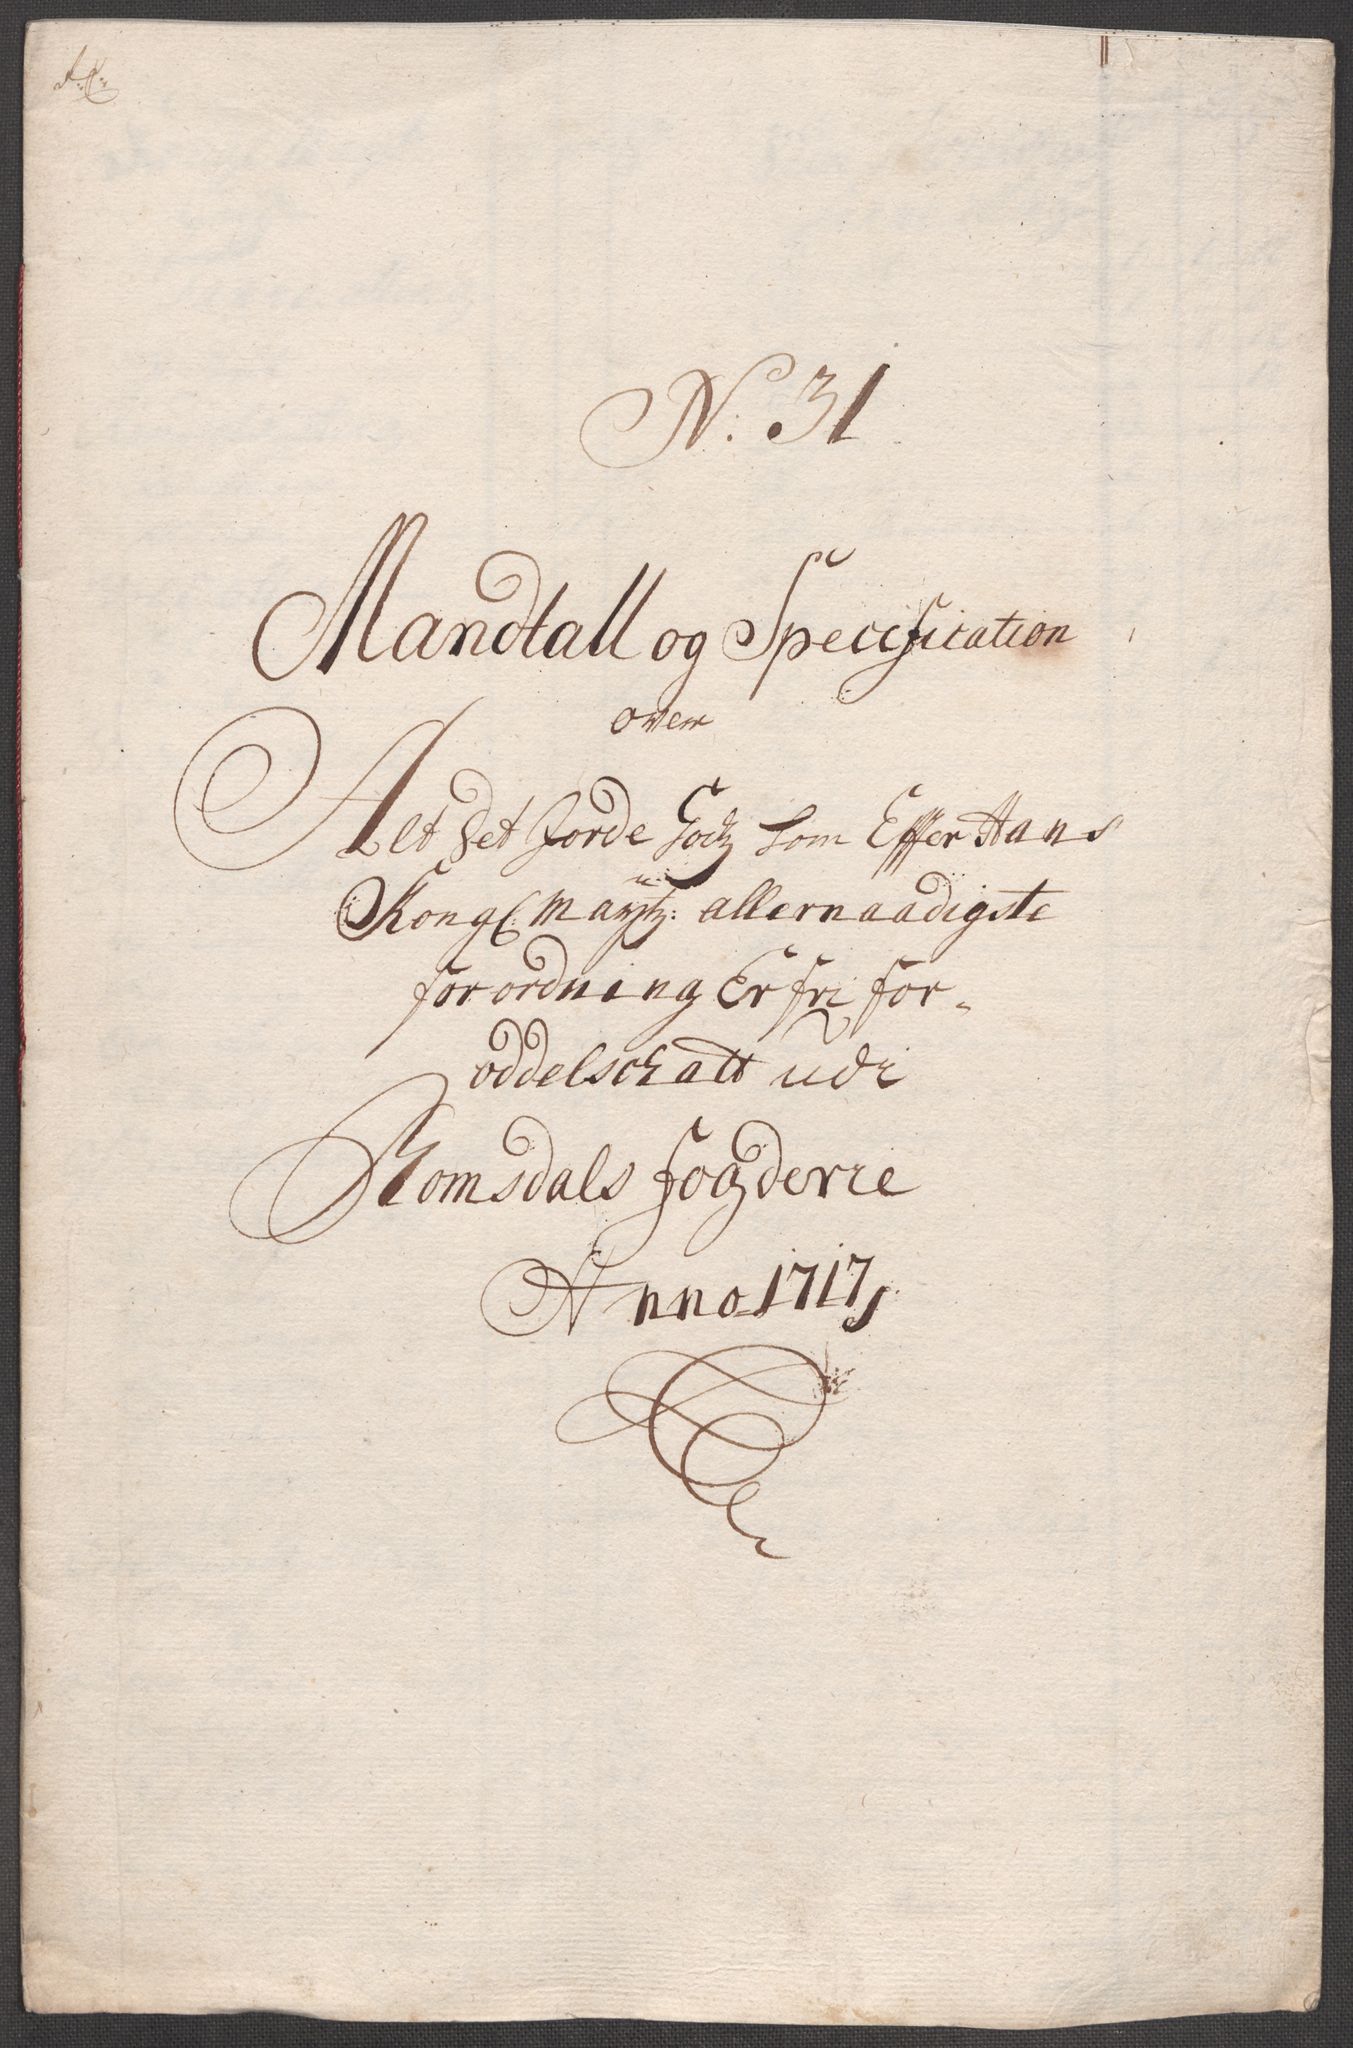 N. 31
Mandtall og Specification
over
Alt det Jorde Godtz som Effter Hans
Kongl: Maÿtz: allernaadigste
forordning Er fri for-
oddelschatt udi
Romsdals fogderie
Anno 1717